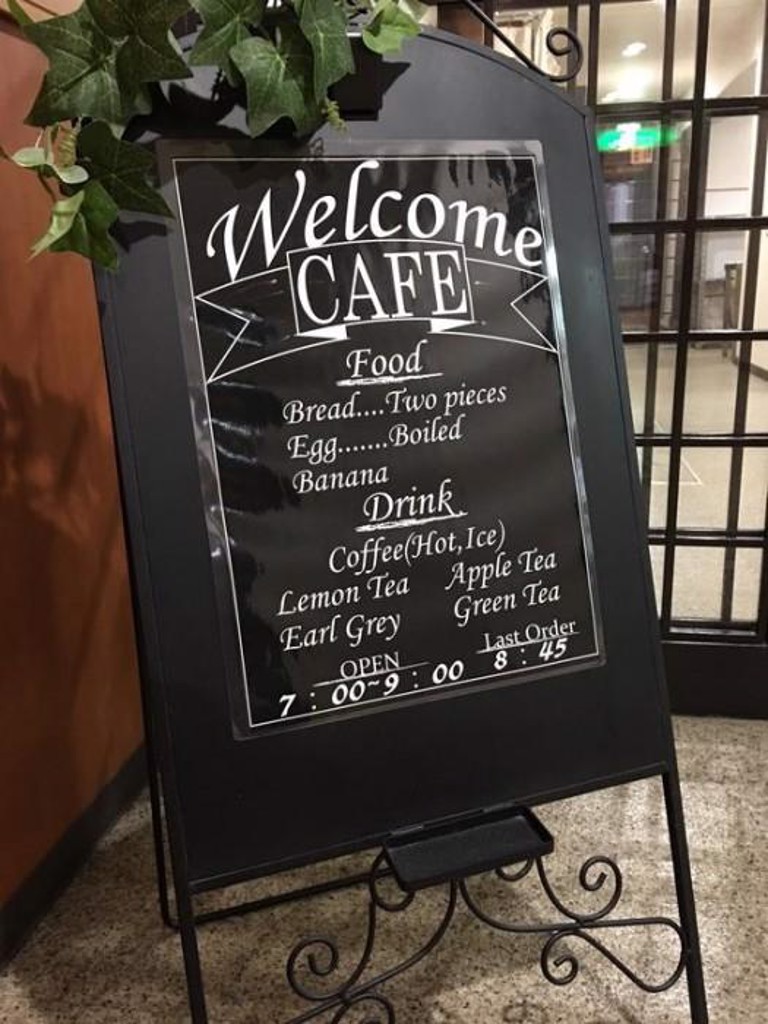 Welcome
CAFE
Food
Bread....Two pieces
Egg.......Boiled
Banana
Drink
Coffee(Hot,Ice)
Lemon Tea Apple Tea
Earl Grey Green Tea
OPEN Last Order
7 : 00~9 : 00 8 : 45